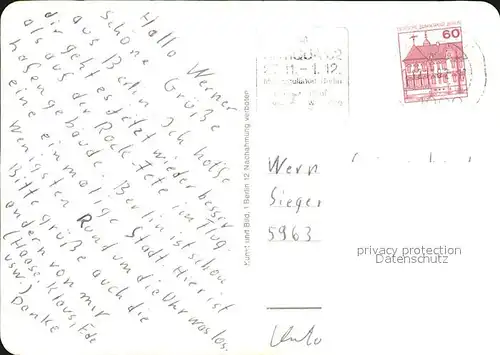 Hallo Werner
Schöne Grüße
aus Berlin. Ich hoffe
dir geht es jetzt wieder besser
als auf der Rock-Fete im Flug-
hafengebäude. Berlin ist schon
eine einmalige Stadt. Hier ist
wenigsten Rund um die Uhr was los.
Bitte grüße auch die
andern von mir
(Haase, Klaus, Ede
usw.)
Danke
Kunst und Bild, 1 Berlin 12, Nachahmung verboten
27.11.-1.12.
60
Wern
Sieger
5963
privacy protection
Datenschutz